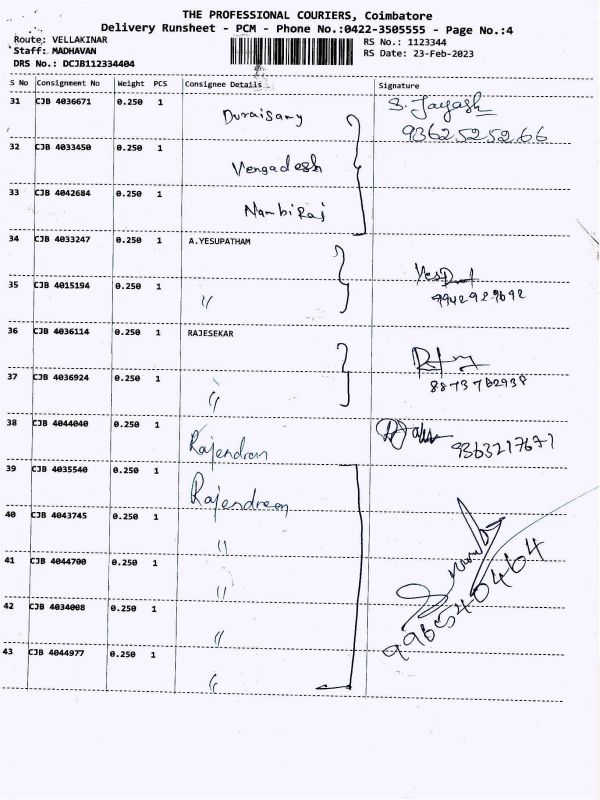 THE PROFESSIONAL COURIERS, Coimbatore
Delivery Runsheet - PCM - Phone No.:0422-3505555 - Page No.:4
Route: VELLAKINAR RS No.: 1123344
Staff: MADHAVAN RS Date: 23-Feb-2023
DRS No.: DCJB112334404
S No Consignment No Weight PCS Consignee Details Signature
31 CJB 4036671 0.250 1 Duraisamy S. Jayash
9362525266
32 CJB 4033450 0.250 1 Vengadesh
33 CJB 4042684 0.250 1 Nambiraj
34 CJB 4033247 0.250 1 A.YESUPATHAM
35 CJB 4015194 0.250 1 〃 9942929692
36 CJB 4036114 0.250 1 RAJESEKAR
37 CJB 4036924 0.250 1 〃 8873762938
38 CJB 4044040 0.250 1 Rajendran 9363217671
39 CJB 4035540 0.250 1 Rajendran
40 CJB 4043745 0.250 1 〃
41 CJB 4044700 0.250 1 〃 9965540464
42 CJB 4034008 0.250 1 〃
43 CJB 4044977 0.250 1 〃